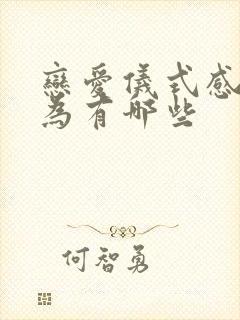 戀愛儀式感
為有哪些
何智勇